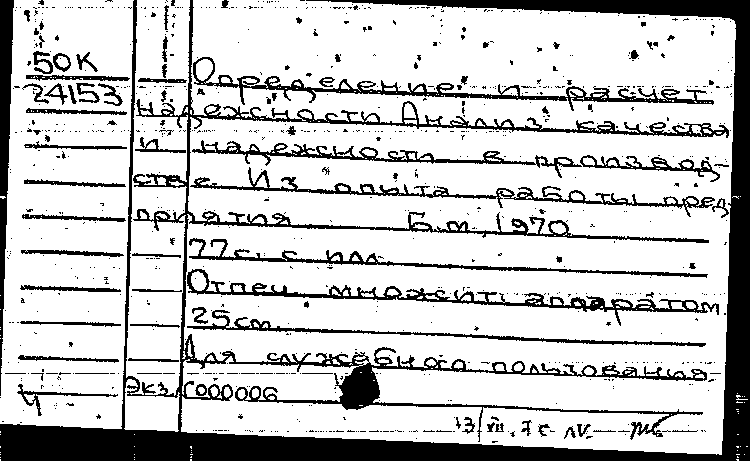 50К
24153
Определение и расчет
надежности Анализ качества
и надежности в производ-
стве Из опыта работы пред
приятия Б.м., 1970
77с. с илл.
Отпеч. множит. аппаратом
25см.
Для служебного пользования
Экз. С000006
Ч